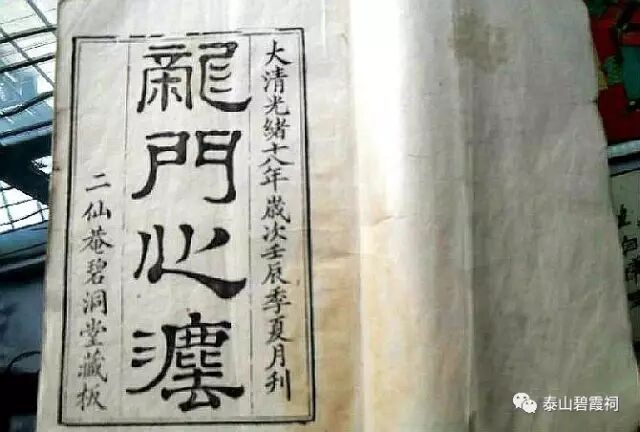 大清光緒十八年歲次壬辰季夏月刊
龍門心灋
二仙菴碧洞堂藏板
泰山碧霞祠